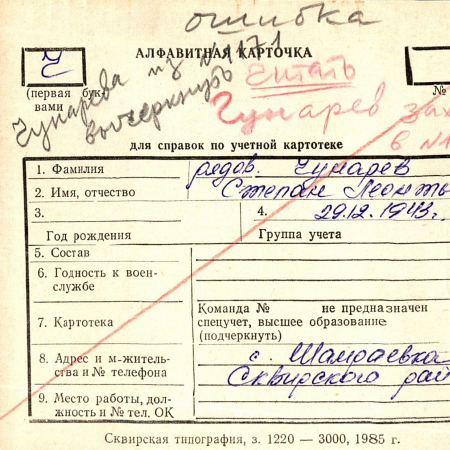 ошибка
АЛФАВИТНАЯ КАРТОЧКА
Ч
(первая бук
вами
№
Чунарева из №171
вычеркнуть
Читать
Чунарев зах
в №1
для справок по учетной картотеке
1. Фамилия рядов. Чунарев
2. Имя, отчество Степан Леонть
3. 4. 29.12.1943г.
Год рождения Группа учета
5. Состав
6. Годность к воен-
службе
7. Картотека
Команда № не предназначен
спецучет, высшее образование
(подчеркнуть)
8. Адрес и м-житель-
ства и № телефона
с. Шамраевка
Сквирского рай
9. Место работы, дол-
жность и № тел. ОК
Сквирская типография, з. 1220 — 3000, 1985 г.